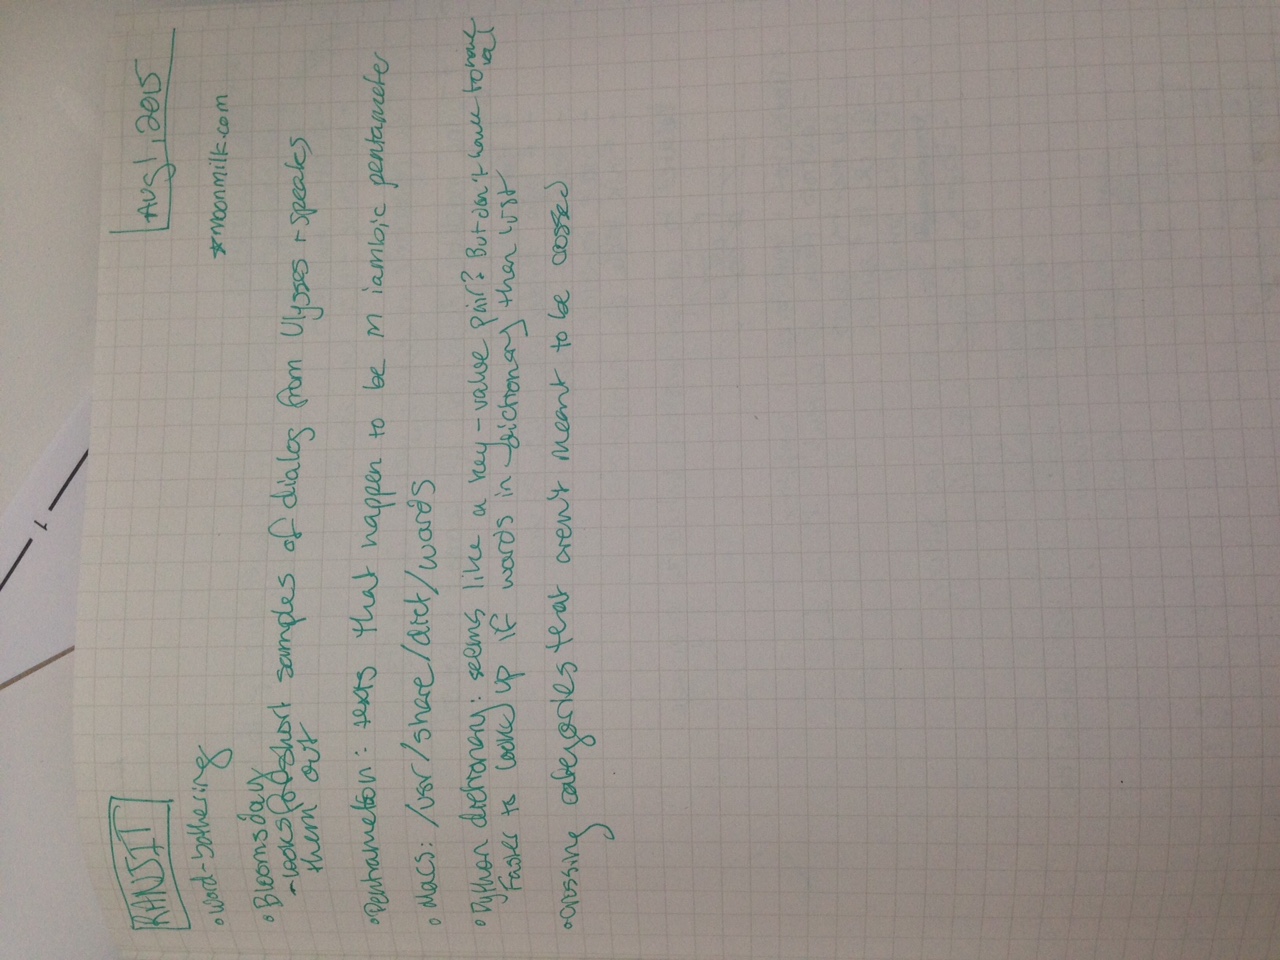 RANJIT
AUG 1, 2015
• word-bothering
*moonmilk.com
• Bloomsday
- looks for short samples of dialog from Ulysses + speaks
them out
• Pentrameton: texts that happen to be in iambic pentameter
• Macs: /usr/share/dict/words
• Python dictionary: seems like a key-value pair? But don't have to have
val
Faster to look up if words in dictionary than list
• crossing categories that aren't meant to be crossed